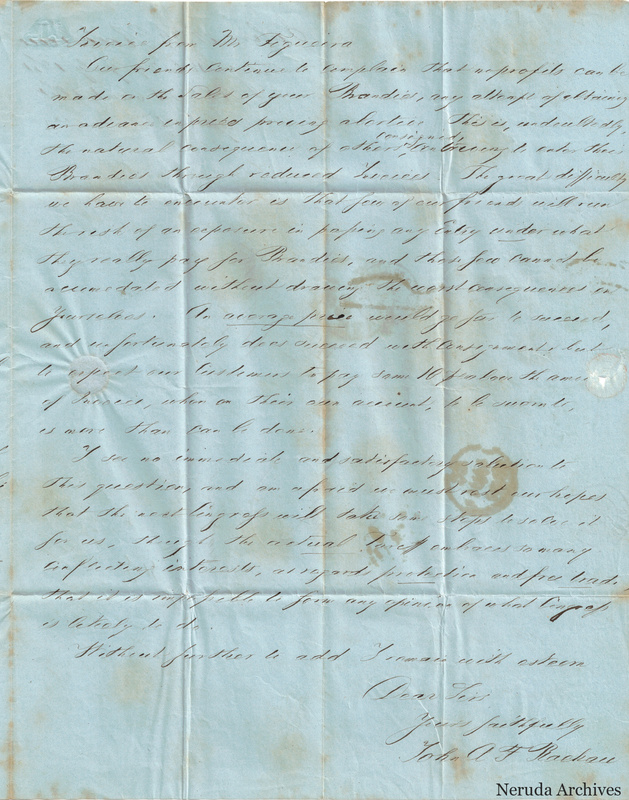 from Mr Figueira
Our friends continue to complain that no profits can be
made on the Sales of your Brandies, any attempt of obtaining
an advance in price proving abortive. This is, undoubtedly,
the natural consequence of others, consigned, to enter their
Brandies through reduced Invoices. The great difficulty
we have to encounter is that few of our friends will run
the risk of an exposure in passing any Entry under what
they really pay for Brandies, and those few cannot be
accomodated without drawing the worst consequences on
yourselves. An average price would go far to succeed,
and unfortunately does succeed with consignments but
to expect our Customers to pay some 10 p% above the amount
of Invoice, when on their own account, to be sworn to,
is more than can be done.
I see no immediate and satisfactory solution to
this question, and am afraid we must rest our hopes
that the next Congress will take some steps to solve it
for us, though the actual Tariff embraces so many
conflicting interests, as regards protection and free trade
that it is impossible to form any opinion of what Congress
is likely to do.
Without further to add I remain with esteem
Dear Sirs
Yours faithfully
John A F
Neruda Archives